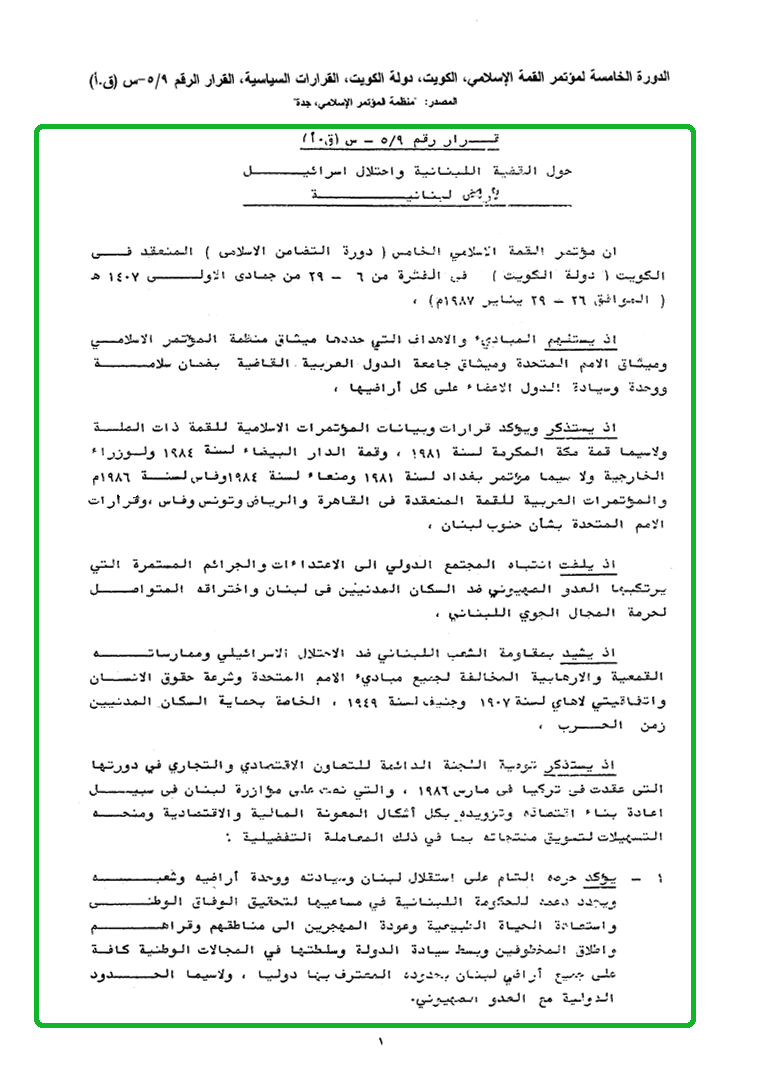 الدورة الخامسة لمؤتمر القمة الإسلامي، الكويت، دولة الكويت، القرارات السياسية، القرار الرقم ٥/٩-س (ق.أ)
المصدر: "منظمة المؤتمر الإسلامي، جدة"
قـــرار رقم ٥/٩ – س (ق٠أ)
حول القضية اللبنانية واحتلال اسرائيـــــــل
لأراض لبنانيـــــــــة
ان مؤتمر القمة الاسلامي الخامس ( دورة التضامن الاسلامى ) المنعقد فـــى
الكويت ( دولة الكويت ) فى الفترة من ٦ – ٢٩ من جمادى الاولـــى ١٤٠٧ هـ
( الموافق ٢٦ – ٢٩ يناير ١٩٨٧م) ،
اذ يستلهم المبادىء والاهداف التي حددها ميثاق منظمة المؤتمر الاسلامـي
وميثاق الامم المتحدة وميثاق جامعة الدول العربية القاضية بضمان سلامــــة
ووحدة وسيادة الدول الاعضاء على كل أراضيها ،
اذ يستذكر ويؤكد قرارات وبيانات المؤتمرات الاسلامية للقمة ذات الصلـة
ولاسيما قمة مكة المكرمة لسنة ١٩٨١ ، وقمة الدار البيضاء لسنة ١٩٨٤ ولـوزراء
الخارجية ولا سيما مؤتمر بغداد لسنة ١٩٨١ وصنعاء لسنة ١٩٨٤وفاس لسنــة ١٩٨٦م
والمؤتمرات العربية للقمة المنعقدة فى القاهرة والرياض وتونس وفاس ،وقرارات
الامم المتحدة بشأن جنوب لبنان ،
اذ يلفت انتباه المجتمع الدولي الى الاعتداءات والجرائم المستمرة التي
يرتكبها العدو الصهيوني ضد السكان المدنيين فى لبنان واختراقه المتواصــل
لحرمة المجال الجوي اللبناني ،
اذ يشيد بمقاومة الشعب اللبناني ضد الاحتلال الاسرائيلي وممارساتــــه
القمعية والارهابية المخالفة لجميع مبادىء الامم المتحدة وشرعة حقوق الانســان
واتفاقيتي لاهاي لسنة ١٩٠٧ وجنيف لسنة ١٩٤٩ ، الخاصة بحماية السكان المدنييـن
زمن الحـــرب ،
اذ يستذكر توصية اللجنة الدائمة للتعاون الاقتصادي والتجاري في دورتها
التى عقدت فى تركيا فى مارس ١٩٨٦ ، والتي نصت على مؤازرة لبنان فى سبيـــل
اعادة بناء اقتصاده وتزويده بكل أشكال المعونة المالية والاقتصادية ومنحـــه
التسهيلات لتسويق منتجاته بما في ذلك المعاملة التفضيلية :
١ – يؤكد حرصه التام على استقلال لبنان وسيادته ووحدة أراضيه وشعبـــــه
ويجدد دعمه للحكومة اللبنانية في مساعيها لتحقيق الوفاق الوطنـــى
واستعادة الحياة الطبيعية وعودة المهجرين الى مناطقهم وقراهـــم
واطلاق المخطوفين وبسط سيادة الدولة وسلطتها في المجالات الوطنية كافـة
على جميع أراضي لبنان بحدوده المعترف بها دوليا ، ولاسيما الحـــدود
الدولية مع العدو الصهيوني٠
١